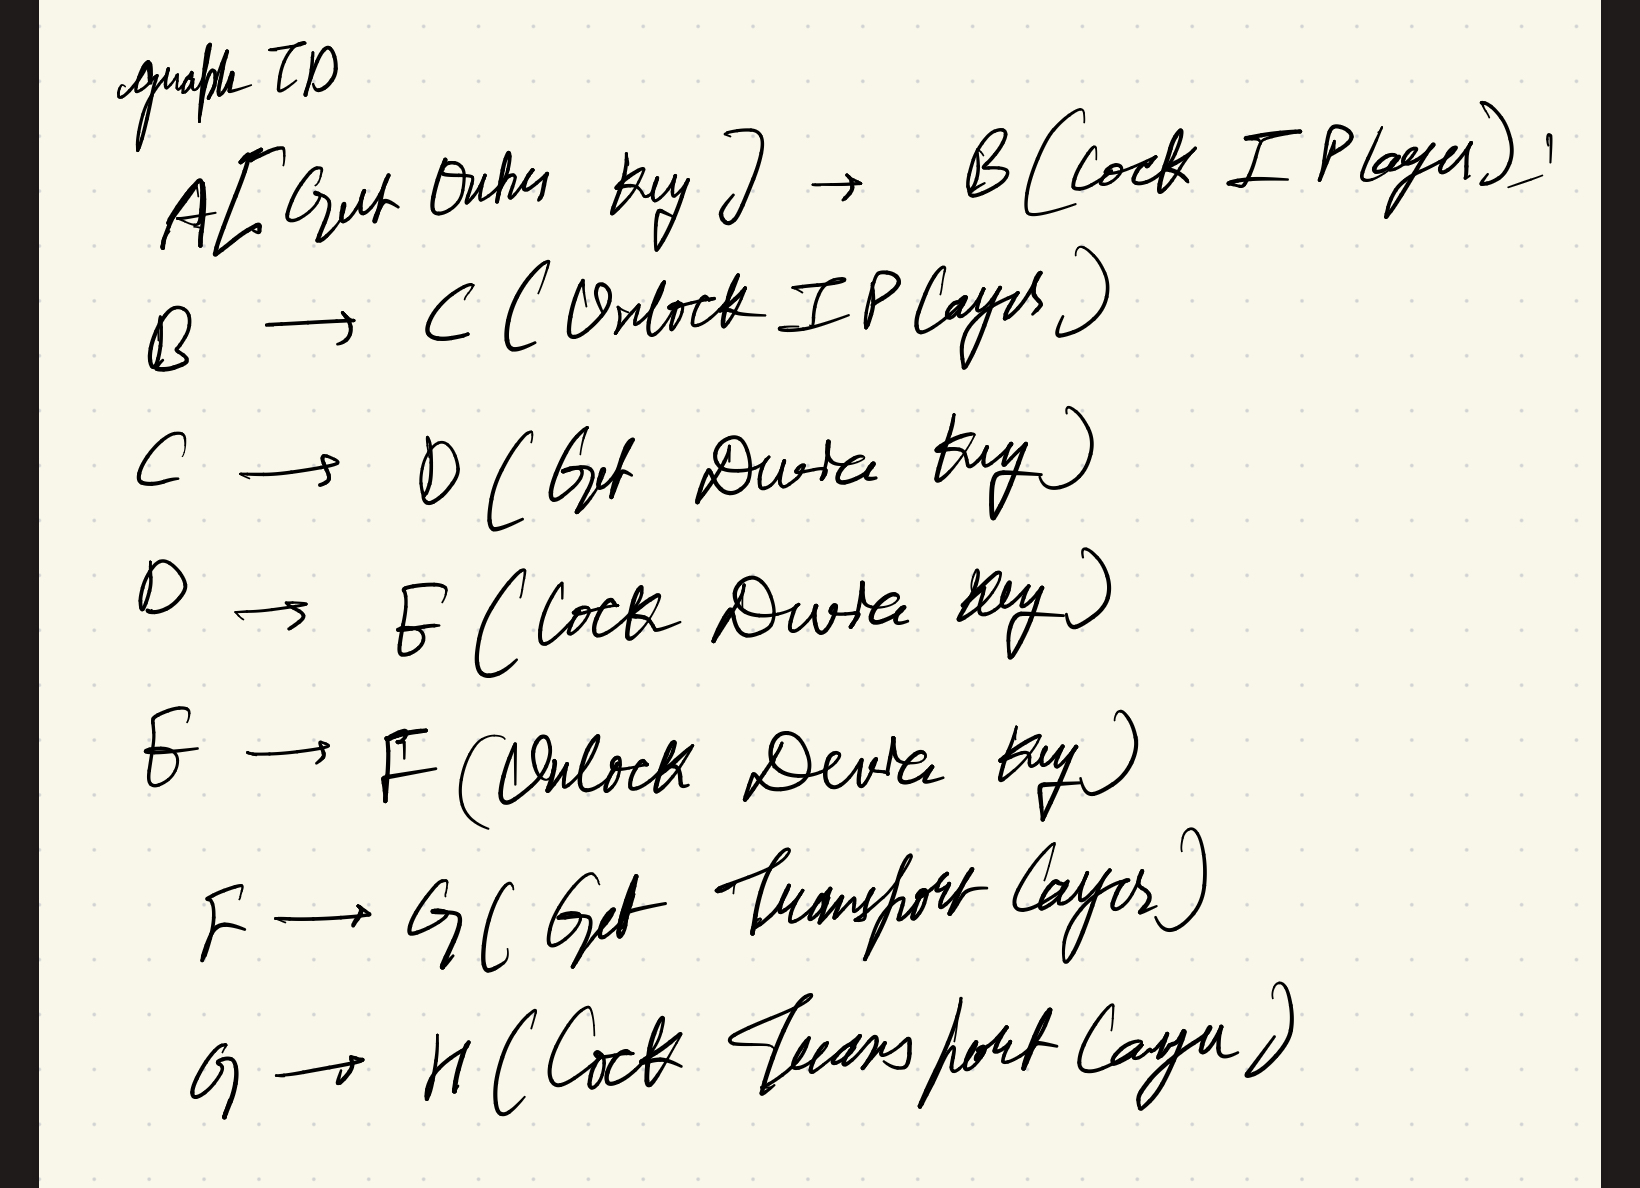 graph TD
A[Get Outer Key] → B(Lock IP Layer);
B → C (Unlock IP Layer)
C → D (Get Device Key)
D → E (Lock Device Key)
E → F (Unlock Device Key)
F → G (Get Transport Layer)
G → H (Lock Transport Layer)